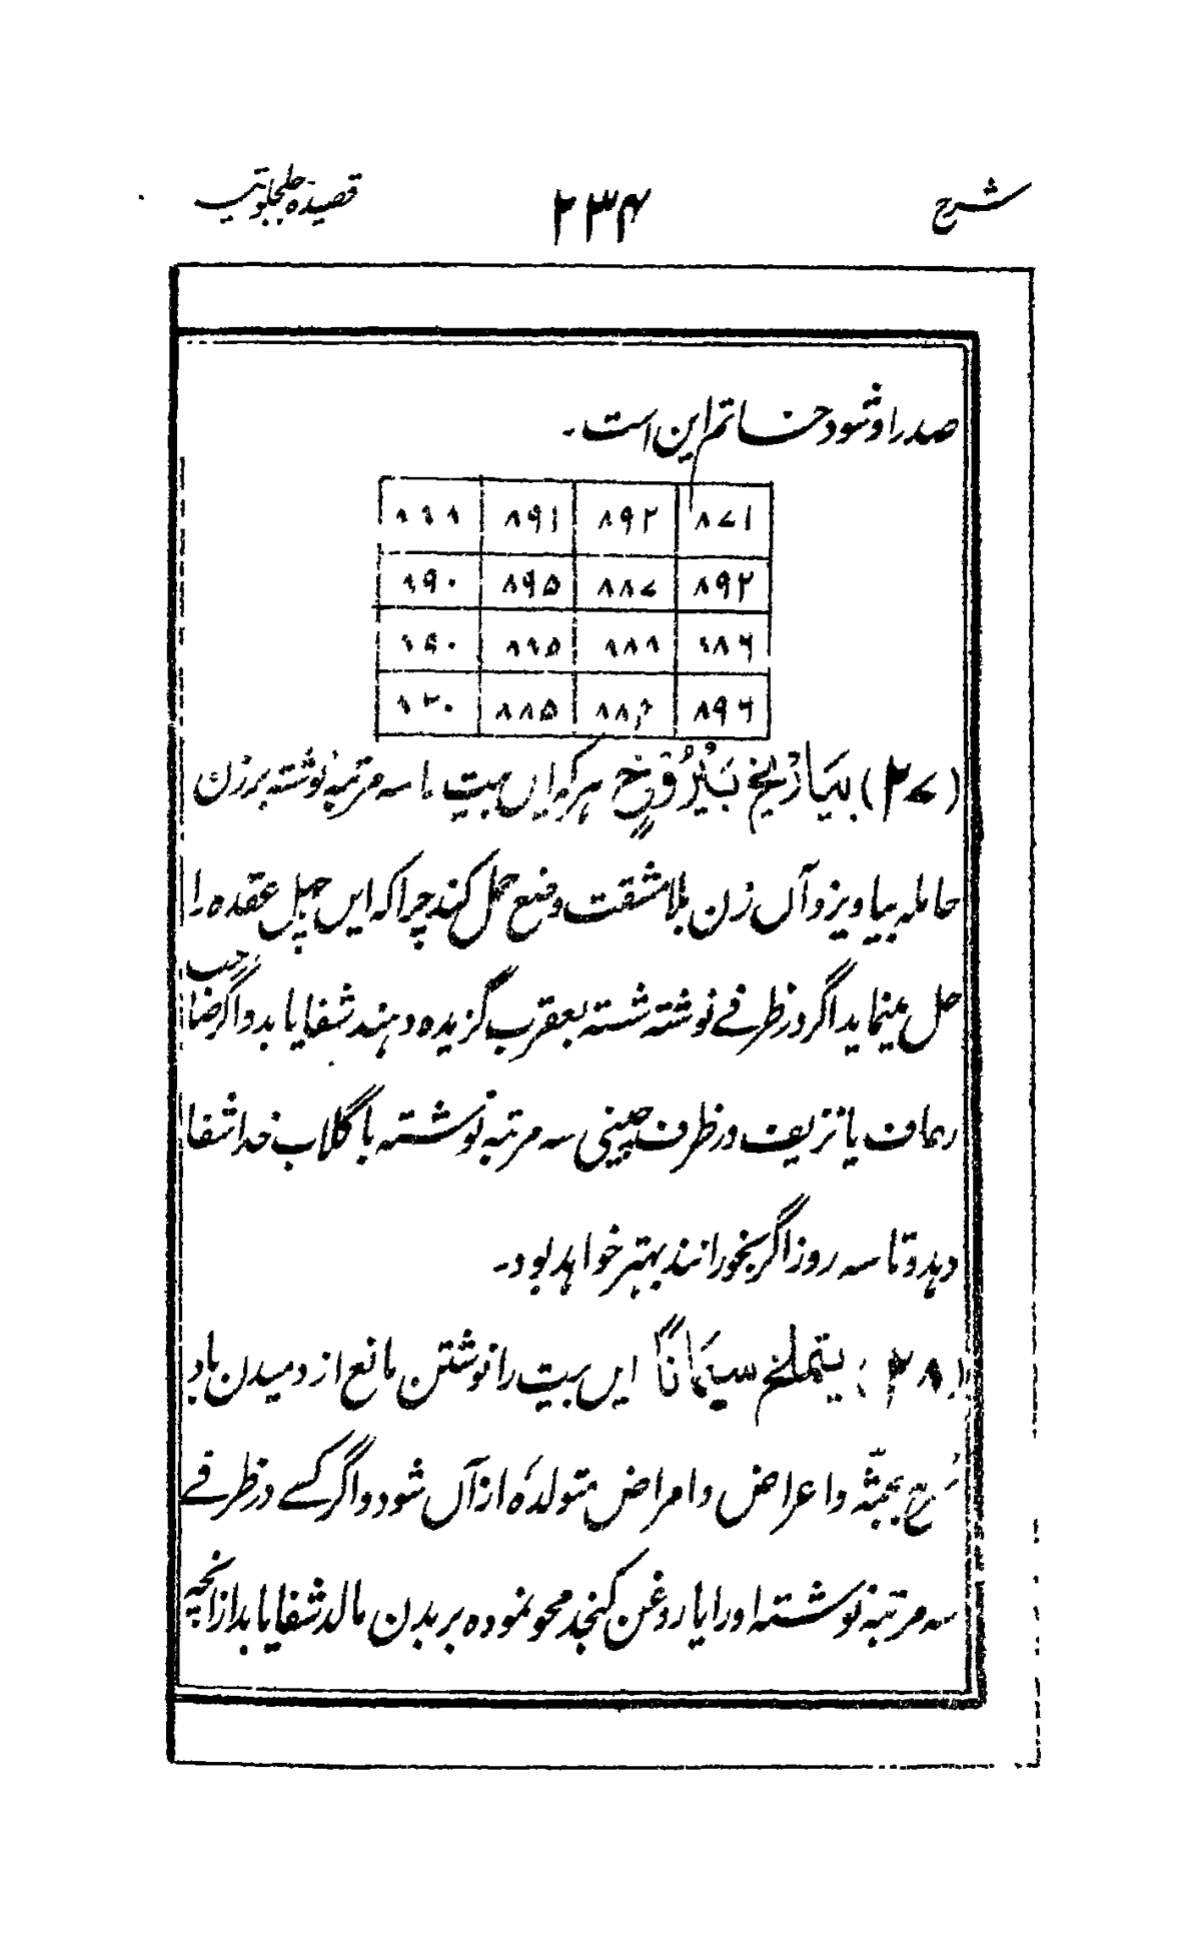 شرح ۲۳۴ قصیدہ جلجلوتیہ
صدر او شود خاتم این است۔
۸۷۱ ۸۹۲ ۸۹۱
۸۹۲ ۸۸۷ ۸۹۵
۸۸۵ ۸۹۶
(۲۷) بیاریخ بیروخ ہر کہ ایں بیت را سہ مرتبہ نوشتہ بر زن
حاملہ بیاویزد آں زن بلا مشقت وضع حمل کند چرا کہ ایں چہل عقدہ را
حل مینماید اگر در ظرفے نوشتہ شستہ بعقرب گزیدہ دہند شفا یابد و اگر صاحب
رعاف یا نزیف در ظرف چینی سہ مرتبہ نوشتہ با گلاب خدا شفا
دہد و تا سہ روز اگر بخورانند بہتر خواہد بود۔
(۲۸) یتملخ سیماناً ایں بیت را نوشتن مانع از دمیدن باد
بمبثہ و اعراض و امراض متولدہ از آں شود و اگر کسے در ظرفے
سہ مرتبہ نوشتہ او را با روغن کنجد محو نمودہ بر بدن مالد شفا یابد از آنچہ